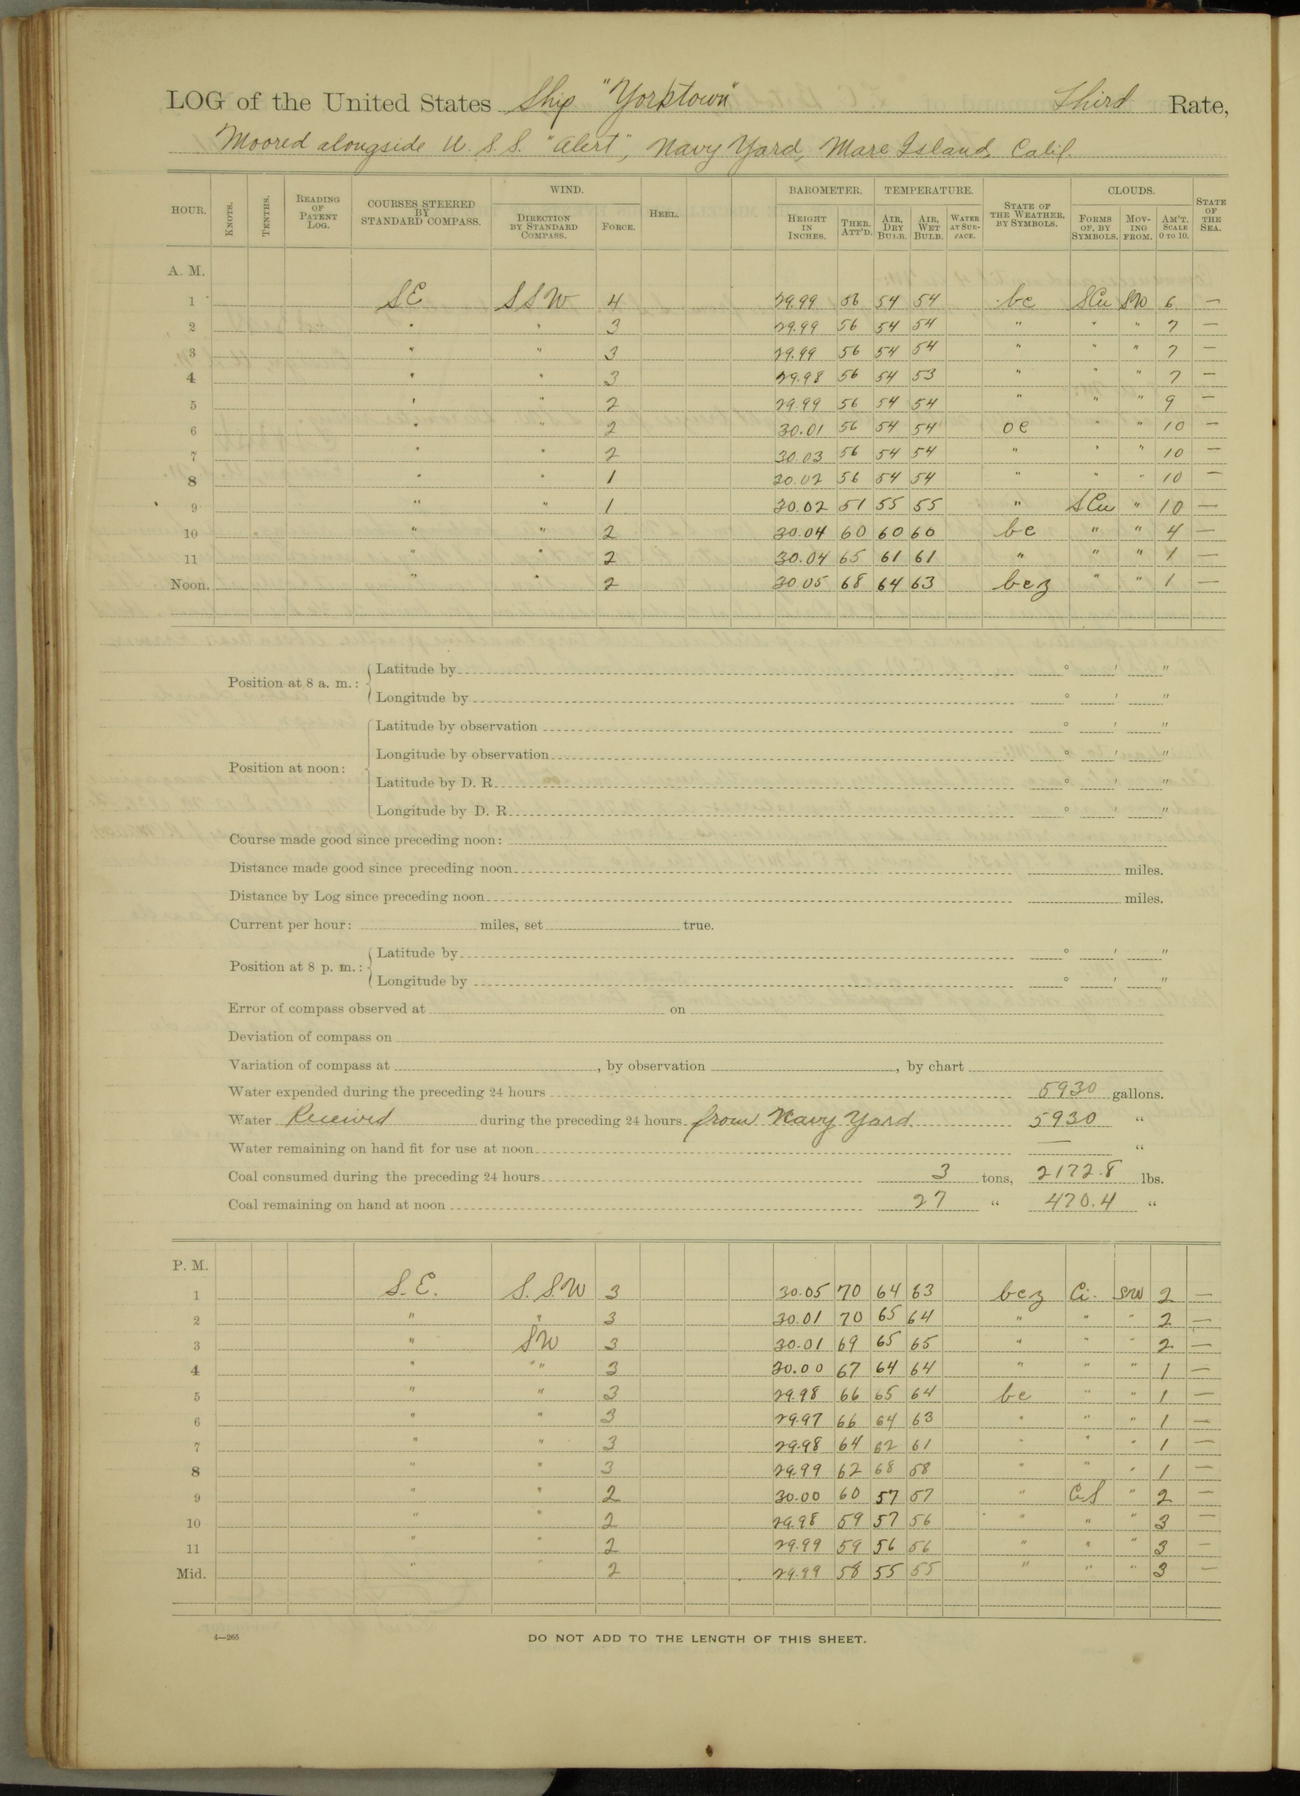 LOG of the United States Ship "Yorktown" Third Rate,
Moored alongside U.S.S. "Alert", Navy Yard, Mare Island, Calif.
HOUR. KNOTS. TENTHS. READING OF PATENT LOG. COURSES STEERED BY STANDARD COMPASS. WIND. DIRECTION BY STANDARD COMPASS. FORCE. HEEL. BAROMETER. HEIGHT IN INCHES. THER. ATT'D. TEMPERATURE. AIR, DRY BULB. AIR, WET BULB. WATER AT SURFACE. STATE OF THE WEATHER, BY SYMBOLS. CLOUDS. FORMS OF, BY SYMBOLS. MOVING FROM. AM'T. SCALE 0 TO 10. STATE OF THE SEA.
A. M.
1 SE SSW 4 29.99 56 54 54 bc SCu SW 6 —
2 " " 3 29.99 56 54 54 " " " 7 —
3 " " 3 29.99 56 54 54 " " " 7 —
4 " " 3 29.98 56 54 53 " " " 7 —
5 " " 2 29.99 56 54 54 " " " 9 —
6 " " 2 30.01 56 54 54 oc " " 10 —
7 " " 2 30.03 56 54 54 " " " 10 —
8 " " 1 30.02 56 54 54 " " " 10 —
9 " " 1 30.02 51 55 55 " SCu " 10 —
10 " " 2 30.04 60 60 60 bc " " 4 —
11 " " 2 30.04 65 61 61 " " " 1 —
Noon. " " 2 30 05 68 64 63 bcz " " 1 —
Position at 8 a. m.: Latitude by ° ' "
Longitude by ° ' "
Position at noon: Latitude by observation ° ' "
Longitude by observation ° ' "
Latitude by D. R. ° ' "
Longitude by D. R. ° ' "
Course made good since preceding noon:
Distance made good since preceding noon miles.
Distance by Log since preceding noon miles.
Current per hour: miles, set true.
Position at 8 p. m.: Latitude by ° ' "
Longitude by ° ' "
Error of compass observed at on
Deviation of compass on
Variation of compass at , by observation , by chart
Water expended during the preceding 24 hours 5930 gallons.
Water Received during the preceding 24 hours from Navy Yard 5930 "
Water remaining on hand fit for use at noon — "
Coal consumed during the preceding 24 hours 3 tons, 2172.8 lbs.
Coal remaining on hand at noon 27 " 470.4 "
P. M.
1 S.E. S.SW 3 30.05 70 64 63 bcz Ci. SW 2 —
2 " " 3 30.01 70 65 64 " " " 2 —
3 " SW 3 30.01 69 65 65 " " " 2 —
4 " " 3 30.00 67 64 64 " " " 1 —
5 " " 3 29.98 66 65 64 bc " " 1 —
6 " " 3 29.97 66 64 63 " " " 1 —
7 " " 3 29.98 64 62 61 " " " 1 —
8 " " 3 29.99 62 68 58 " " " 1 —
9 " " 2 30.00 60 57 57 " CS " 2 —
10 " " 2 29.98 59 57 56 " " " 3 —
11 " " 2 29.99 59 56 56 " " " 3 —
Mid. " " 2 29.99 58 55 55 " " " 3 —
4—265
DO NOT ADD TO THE LENGTH OF THIS SHEET.